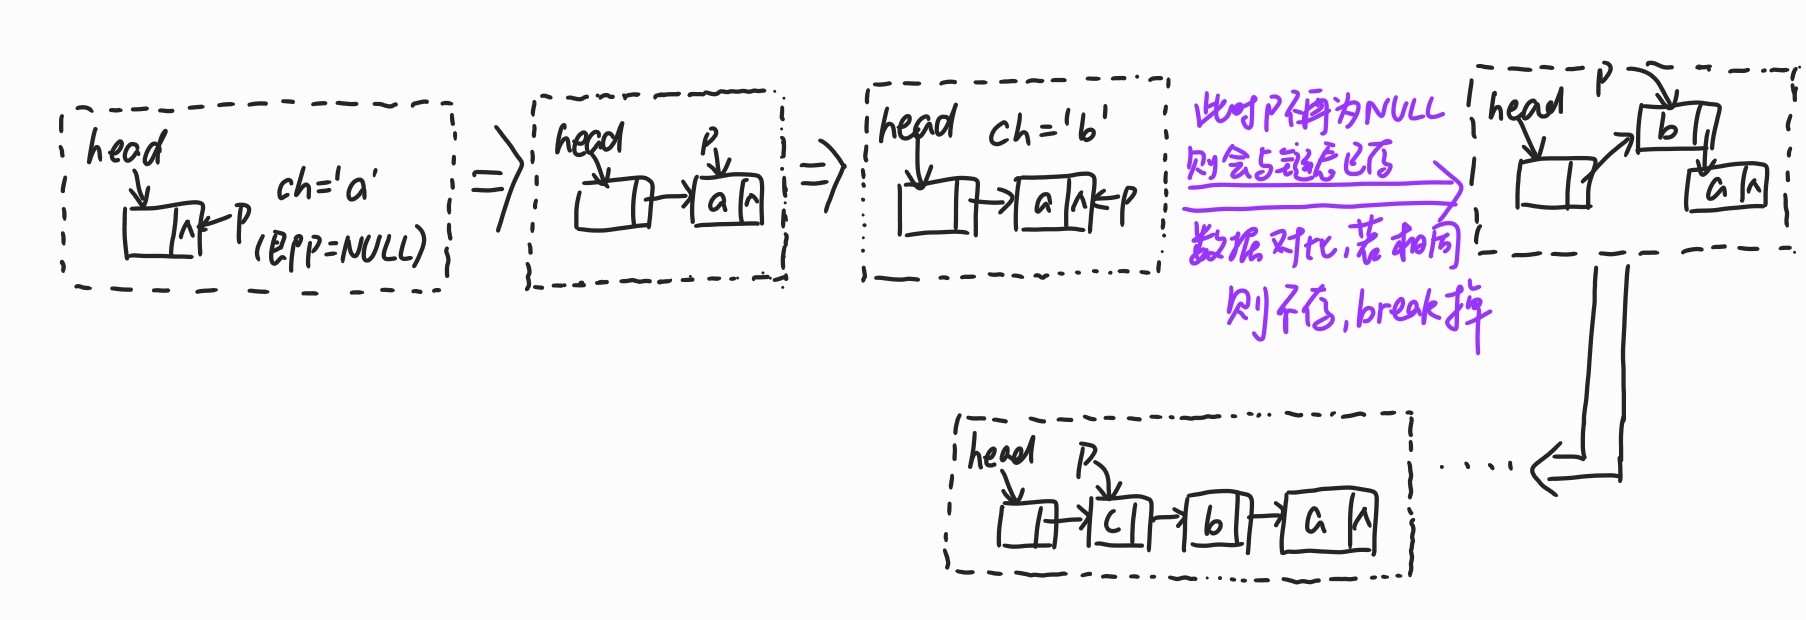 head
ch='a'
p
(即p=NULL)
head
p
a ^
head
ch='b'
a ^
p
此时p不再为NULL
则会与链表已存
数据对比,若相同
则不存,break掉
head
p
b
a ^
head
p
c
b
a ^
....